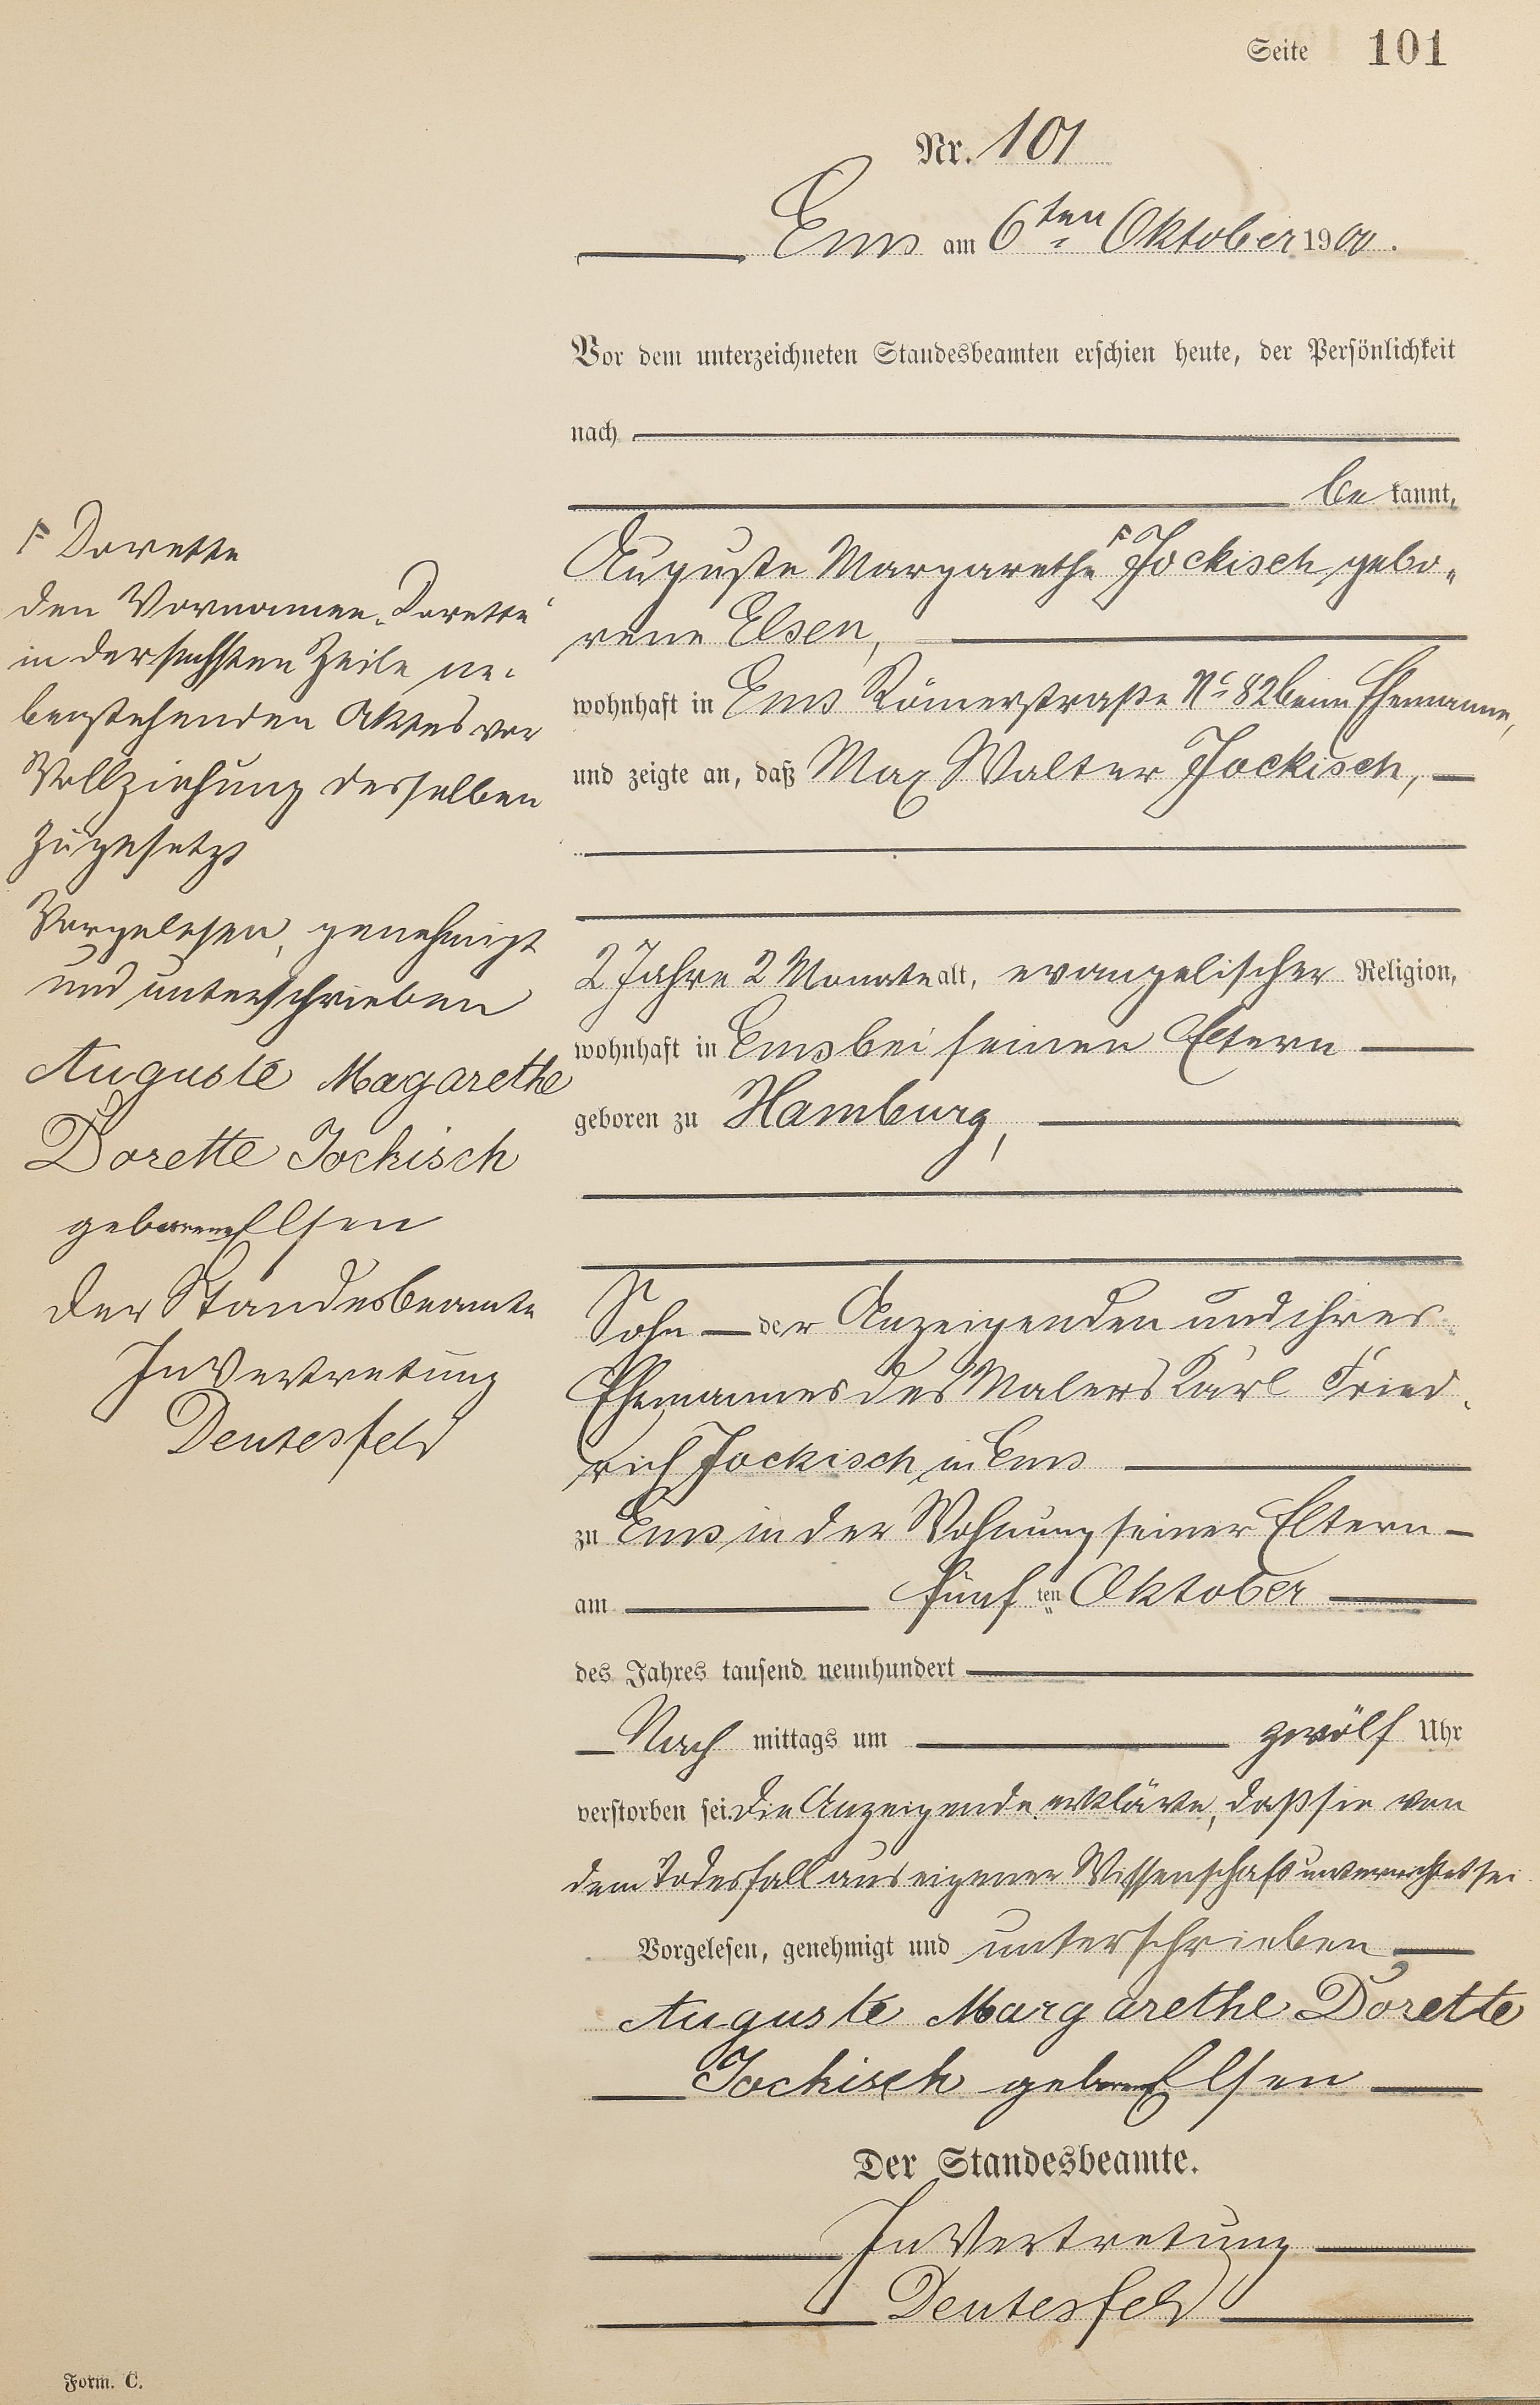 Seite 101
Nr. 101
Ems am 6ten Oktober 1900.
Vor dem unterzeichneten Standesbeamten erschien heute, der Persönlichkeit
nach
be kannt,
Auguste Margarethe F Jockisch gebo-
rene Elsen,
wohnhaft in Ems Römerstraße No 82 beim Ehemanne,
und zeigte an, daß Max Walter Jockisch,
2 Jahre 2 Monate alt, evangelischer Religion,
wohnhaft in Ems bei seinen Eltern
geboren zu Hamburg,
Sohn der Anzeigenden und ihres
Ehemannes des Malers Karl Fried-
rich Jockisch in Ems
zu Ems in der Wohnung seiner Eltern
am fünf ten Oktober
des Jahres tausend neunhundert
Nach mittags um zwölf Uhr
verstorben sei. Die Anzeigende erklärte, daß sie von
dem Todesfall aus eigener Wissenschaft unterrichtet sei.
Vorgelesen, genehmigt und unterschrieben
Auguste Margarethe Dorette
Jockisch geborene Elsen
Der Standesbeamte.
In Vertretung
Deutesfeld
F Dorette
den Vornamen „Dorette“
in der sechsten Zeile ne-
benstehenden Aktes vor
Vollziehung desselben
zugesetzt
Vorgelesen, genehmigt
und unterschrieben
Auguste Magarethe
Dorette Jockisch
geborene Elsen
Der Standesbeamte
In Vertretung
Deutesfeld
Form. C.